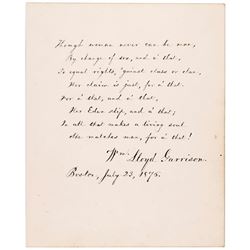 Though woman never can be man,
By change of sex, and a' that,
To equal rights, 'gainst class or clan,
Her claim is just, for a' that.
For a' that, and a' that,
Her Eden slip, and a' that;
In all that makes a living soul
She matches man, for a' that!
Wm. Lloyd Garrison.
Boston, July 23, 1875.